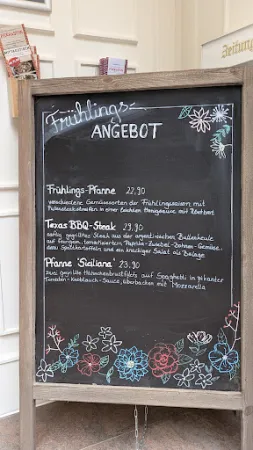 Zeitung
Frühlings-
ANGEBOT
Frühlings-Pfanne 22,90
verschiedene Gemüsesorten der Frühlingssaison mit
in einer leichten Honigsauce, mit Röstbrot
Texas BBQ-Steak 29,90
saftig gegrilltes Steak aus der argentinischen
auf Paprika-Zwiebel-Bohnen-Gemüse,
dazu und ein knackiger Salat als Beilage
Pfanne 'Siciliana' 23,90
zwei gegrillte Hähnchenbrustfilets auf Spaghetti in pikanter
Tomaten-Knoblauch-Sauce, überbacken mit Mozzarella